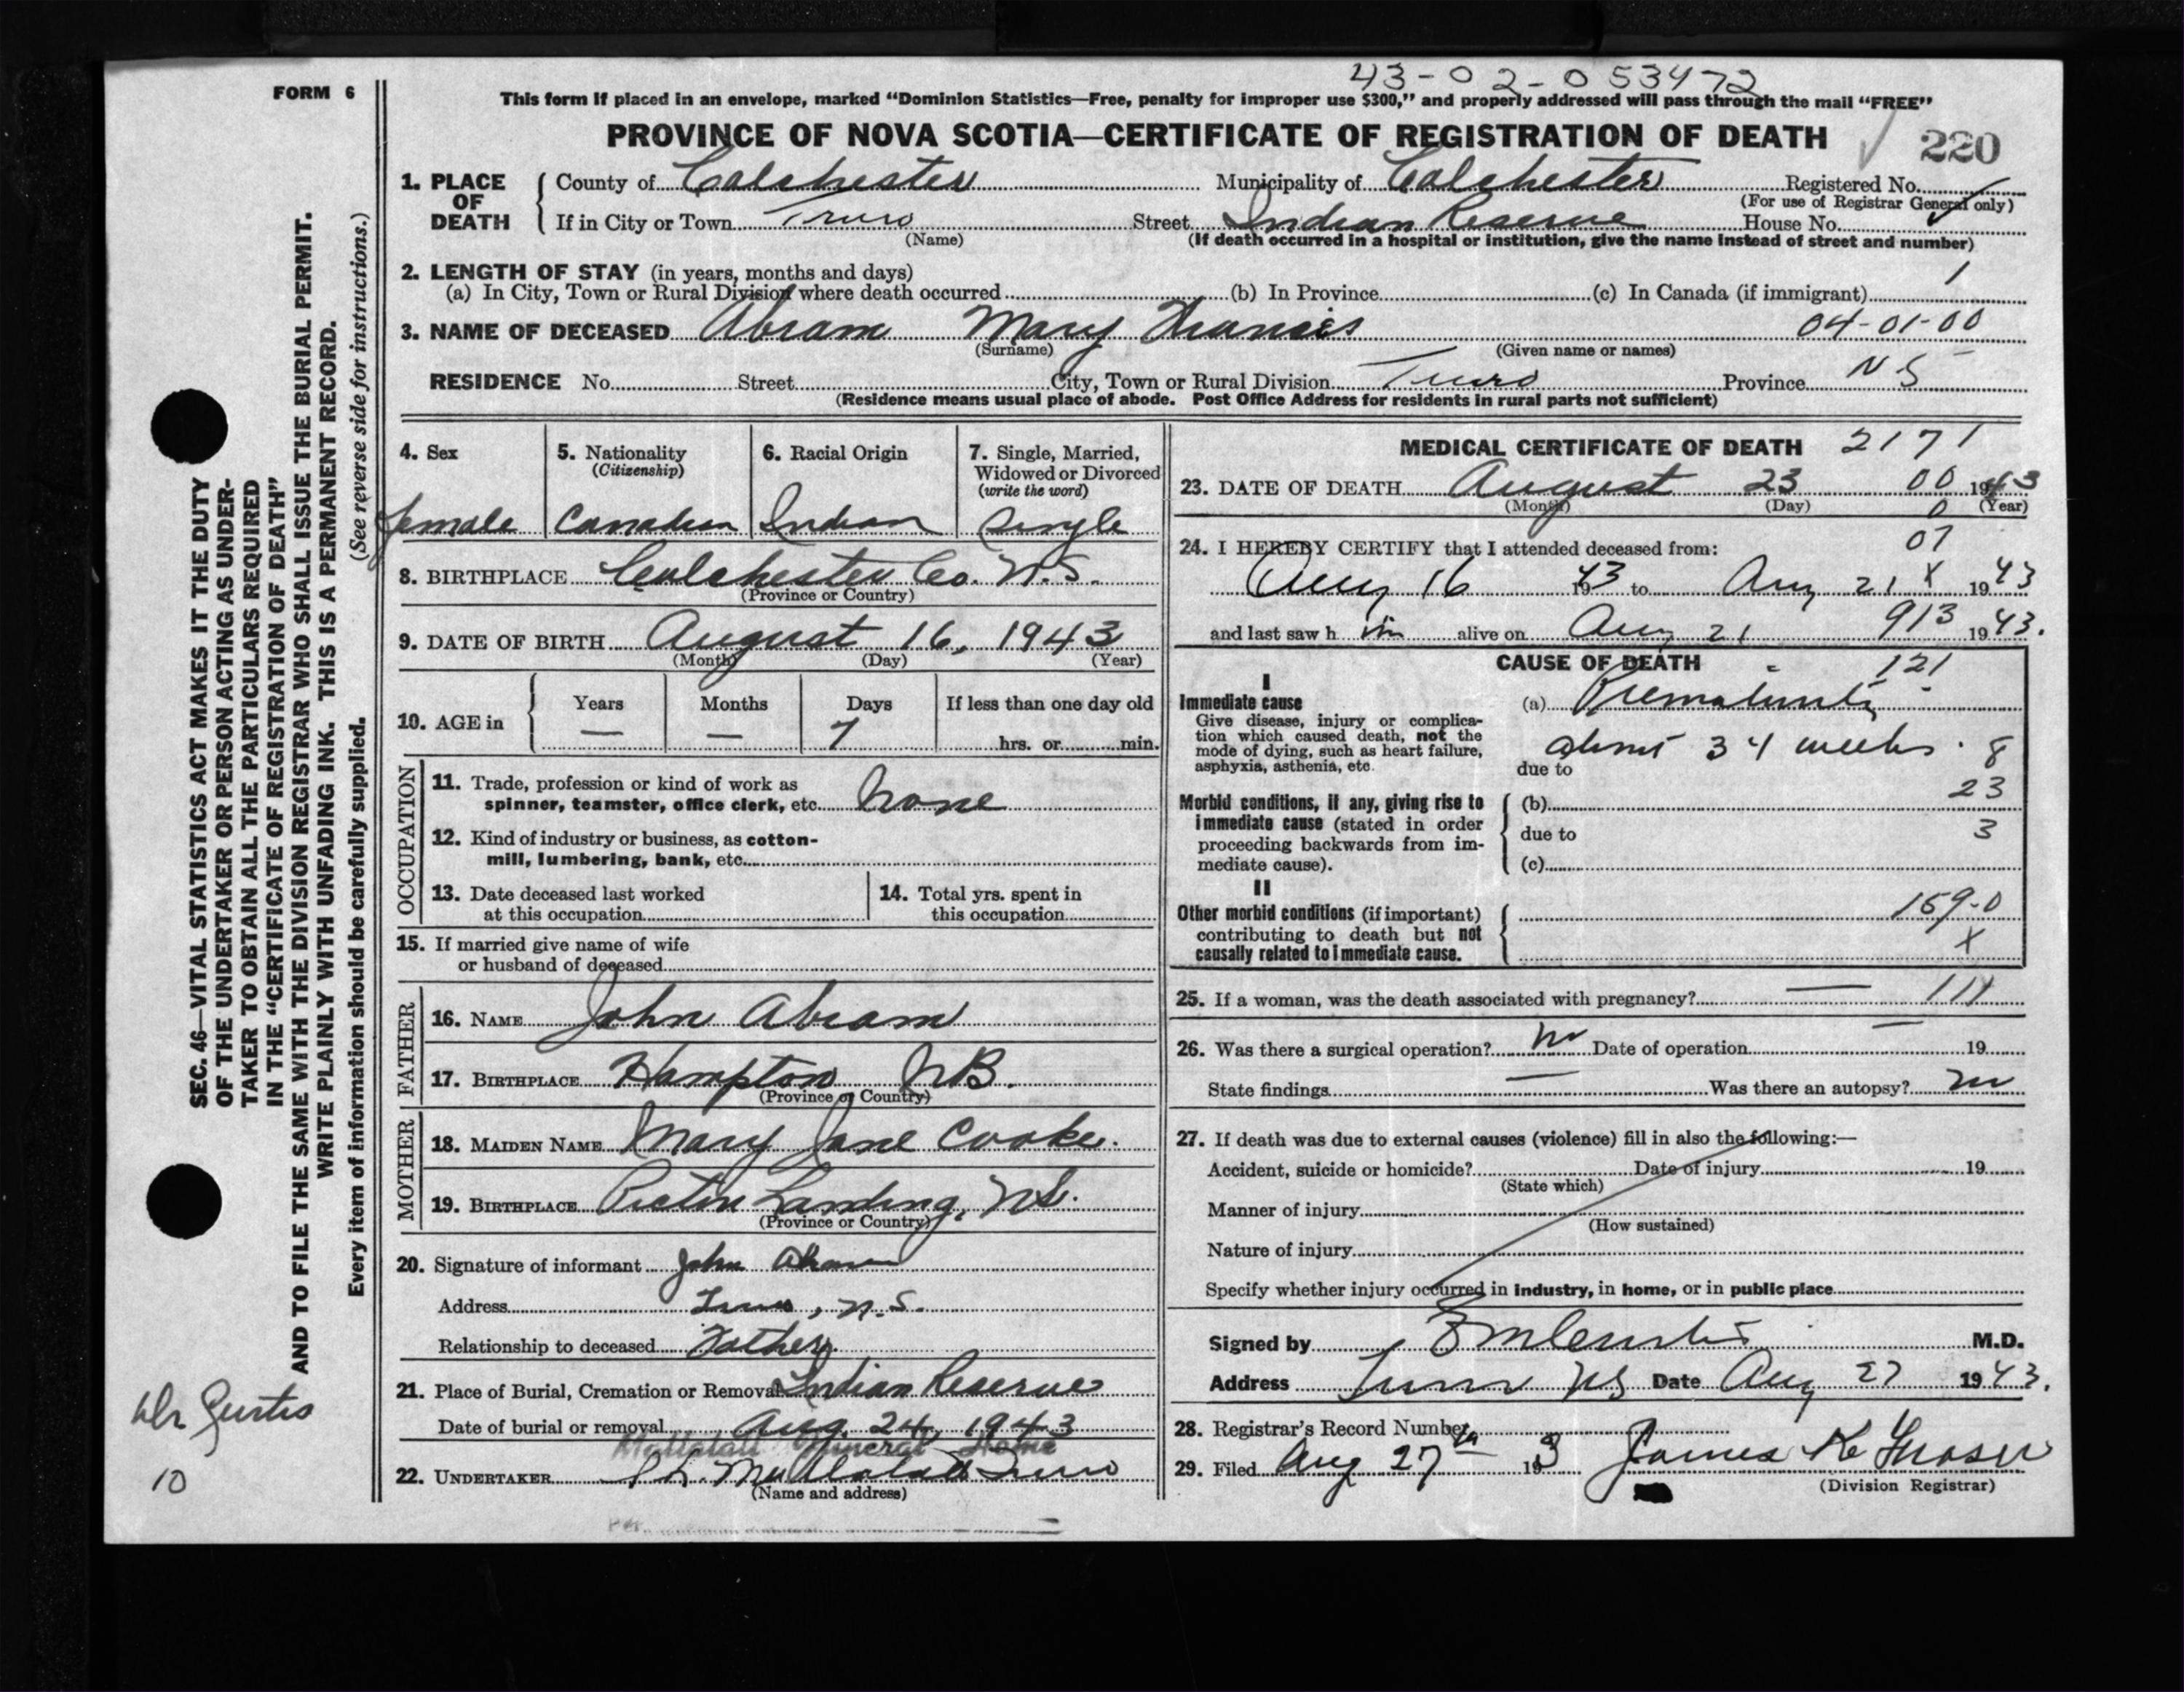 43-02-053472
FORM 6
This form if placed in an envelope, marked "Dominion Statistics—Free, penalty for improper use $300," and properly addressed will pass through the mail "FREE"
PROVINCE OF NOVA SCOTIA—CERTIFICATE OF REGISTRATION OF DEATH
220
1. PLACE OF DEATH County of Colchester Municipality of Colchester Registered No.
(For use of Registrar General only)
If in City or Town Truro Street Indian Reserve House No.
(Name) (If death occurred in a hospital or institution, give the name instead of street and number)
2. LENGTH OF STAY (in years, months and days) 1
(a) In City, Town or Rural Division where death occurred (b) In Province (c) In Canada (if immigrant)
3. NAME OF DECEASED Abram Mary Francis 04-01-00
(Surname) (Given name or names)
RESIDENCE No. Street City, Town or Rural Division Truro Province N S
(Residence means usual place of abode. Post Office Address for residents in rural parts not sufficient)
4. Sex
female
5. Nationality
(Citizenship)
Canadian
6. Racial Origin
Indian
7. Single, Married,
Widowed or Divorced
(write the word)
Single
8. BIRTHPLACE Colchester Co. N.S.
(Province or Country)
9. DATE OF BIRTH August 16, 1943
(Month) (Day) (Year)
10. AGE in Years Months Days If less than one day old
— — 7 hrs. or min.
OCCUPATION
11. Trade, profession or kind of work as
spinner, teamster, office clerk, etc. None
12. Kind of industry or business, as cotton-
mill, lumbering, bank, etc.
13. Date deceased last worked
at this occupation
14. Total yrs. spent in
this occupation
15. If married give name of wife
or husband of deceased
FATHER
16. NAME John Abram
17. BIRTHPLACE Hampton N.B.
(Province or Country)
MOTHER
18. MAIDEN NAME Mary Jane Cooke.
19. BIRTHPLACE Pictou Landing, N.S.
(Province or Country)
20. Signature of informant John Abram
Address Truro, N.S.
Relationship to deceased Father
21. Place of Burial, Cremation or Removal Indian Reserve
Date of burial or removal Aug. 24, 1943
Mattatall Funeral Home
22. UNDERTAKER Mattatall Truro
(Name and address)
Per.
MEDICAL CERTIFICATE OF DEATH 2171
23. DATE OF DEATH August 23 00 1943
(Month) (Day) 0 (Year)
24. I HEREBY CERTIFY that I attended deceased from: 07
Aug 16 1943 to Aug 21 X 1943
and last saw h im alive on Aug 21 913 1943.
CAUSE OF DEATH 121
I
Immediate cause
Give disease, injury or complica-
tion which caused death, not the
mode of dying, such as heart failure,
asphyxia, asthenia, etc.
(a) Prematurity
about 34 weeks. 8
due to
23
Morbid conditions, if any, giving rise to
immediate cause (stated in order
proceeding backwards from im-
mediate cause).
(b)
due to 3
(c)
II
Other morbid conditions (if important)
contributing to death but not
causally related to immediate cause.
159-0
X
25. If a woman, was the death associated with pregnancy? —
26. Was there a surgical operation? no Date of operation — 19
State findings — Was there an autopsy? no
27. If death was due to external causes (violence) fill in also the following:—
Accident, suicide or homicide? Date of injury 19
(State which)
Manner of injury
(How sustained)
Nature of injury
Specify whether injury occurred in industry, in home, or in public place
Signed by M.D.
Address Truro NS Date Aug 27 1943.
28. Registrar's Record Number
29. Filed Aug 27th 193 James K Fraser
(Division Registrar)
SEC. 46—VITAL STATISTICS ACT MAKES IT THE DUTY
OF THE UNDERTAKER OR PERSON ACTING AS UNDER-
TAKER TO OBTAIN ALL THE PARTICULARS REQUIRED
IN THE "CERTIFICATE OF REGISTRATION OF DEATH"
AND TO FILE THE SAME WITH THE DIVISION REGISTRAR WHO SHALL ISSUE THE BURIAL PERMIT.
WRITE PLAINLY WITH UNFADING INK. THIS IS A PERMANENT RECORD.
Every item of information should be carefully supplied. (See reverse side for instructions.)
Dr Curtis
10